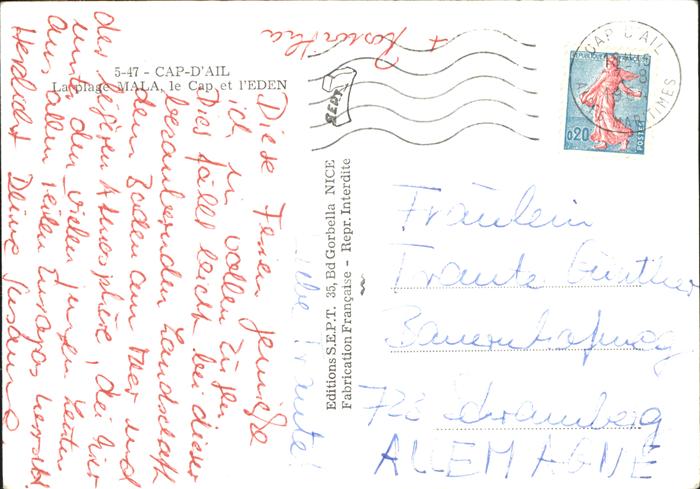 5-47 - CAP-D'AIL
La plage MALA, le Cap et l'EDEN
Liebe Traute!
Diese Ferien genieße
ich in vollen Zügen
Dies fällt leicht bei dieser
bezaubernden Landschaft
dem Baden am Meer und
der legeren Atmosphäre, die hier
unter den vielen jungen Leuten
aus allen Teilen Europas herrscht
Herzlichst Deine Susanne
+
SEPT
Editions S.E.P.T. 35, Ed Gorbella NICE
Fabrication Française - Repr. Interdite
CAP D'AIL
ALPES MARITIMES
REPUBLIQUE FRANÇAISE
0,20
POSTES
Fräulein
Traute Günther
Bauernhofweg
723 Schramberg
ALLEMAGNE